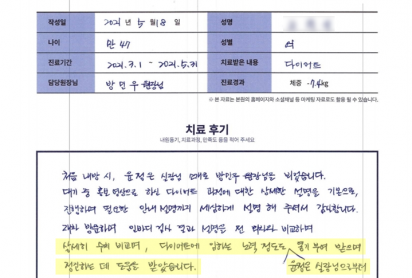 작성일 2021년 5월 18일 성명
나이 만 47 성별 여
진료기간 2021.3.1 ~ 2021.5.31 치료받은 내용 다이어트
담당원장님 방민우 원장님 진료경과 체중 -7.4kg
※ 본 자료는 본원의 홈페이지와 소셜채널 등 마케팅 자료로도 활용 될 수 있습니다.
치료 후기
내원동기, 치료과정, 만족도 등을 적어 주세요.
처음 내방 시, 윤정은 실장님
대기 중 홍보 영상으로 하신 다이어트 과정에 대한 상세한 설명을 기본으로,
진행하며 필요한 안내 설명까지 세심하게 설명 해 주셔서 감사합니다.
매차 방문하여 인바디 검사 결과 설명은 전 회차와 비교하여
상세히 해 주시며, 다이어트에 임하는 노력 정도도 동기부여 받으며
정진하는 데 도움을 받았습니다.
윤정은 실장님으로부터